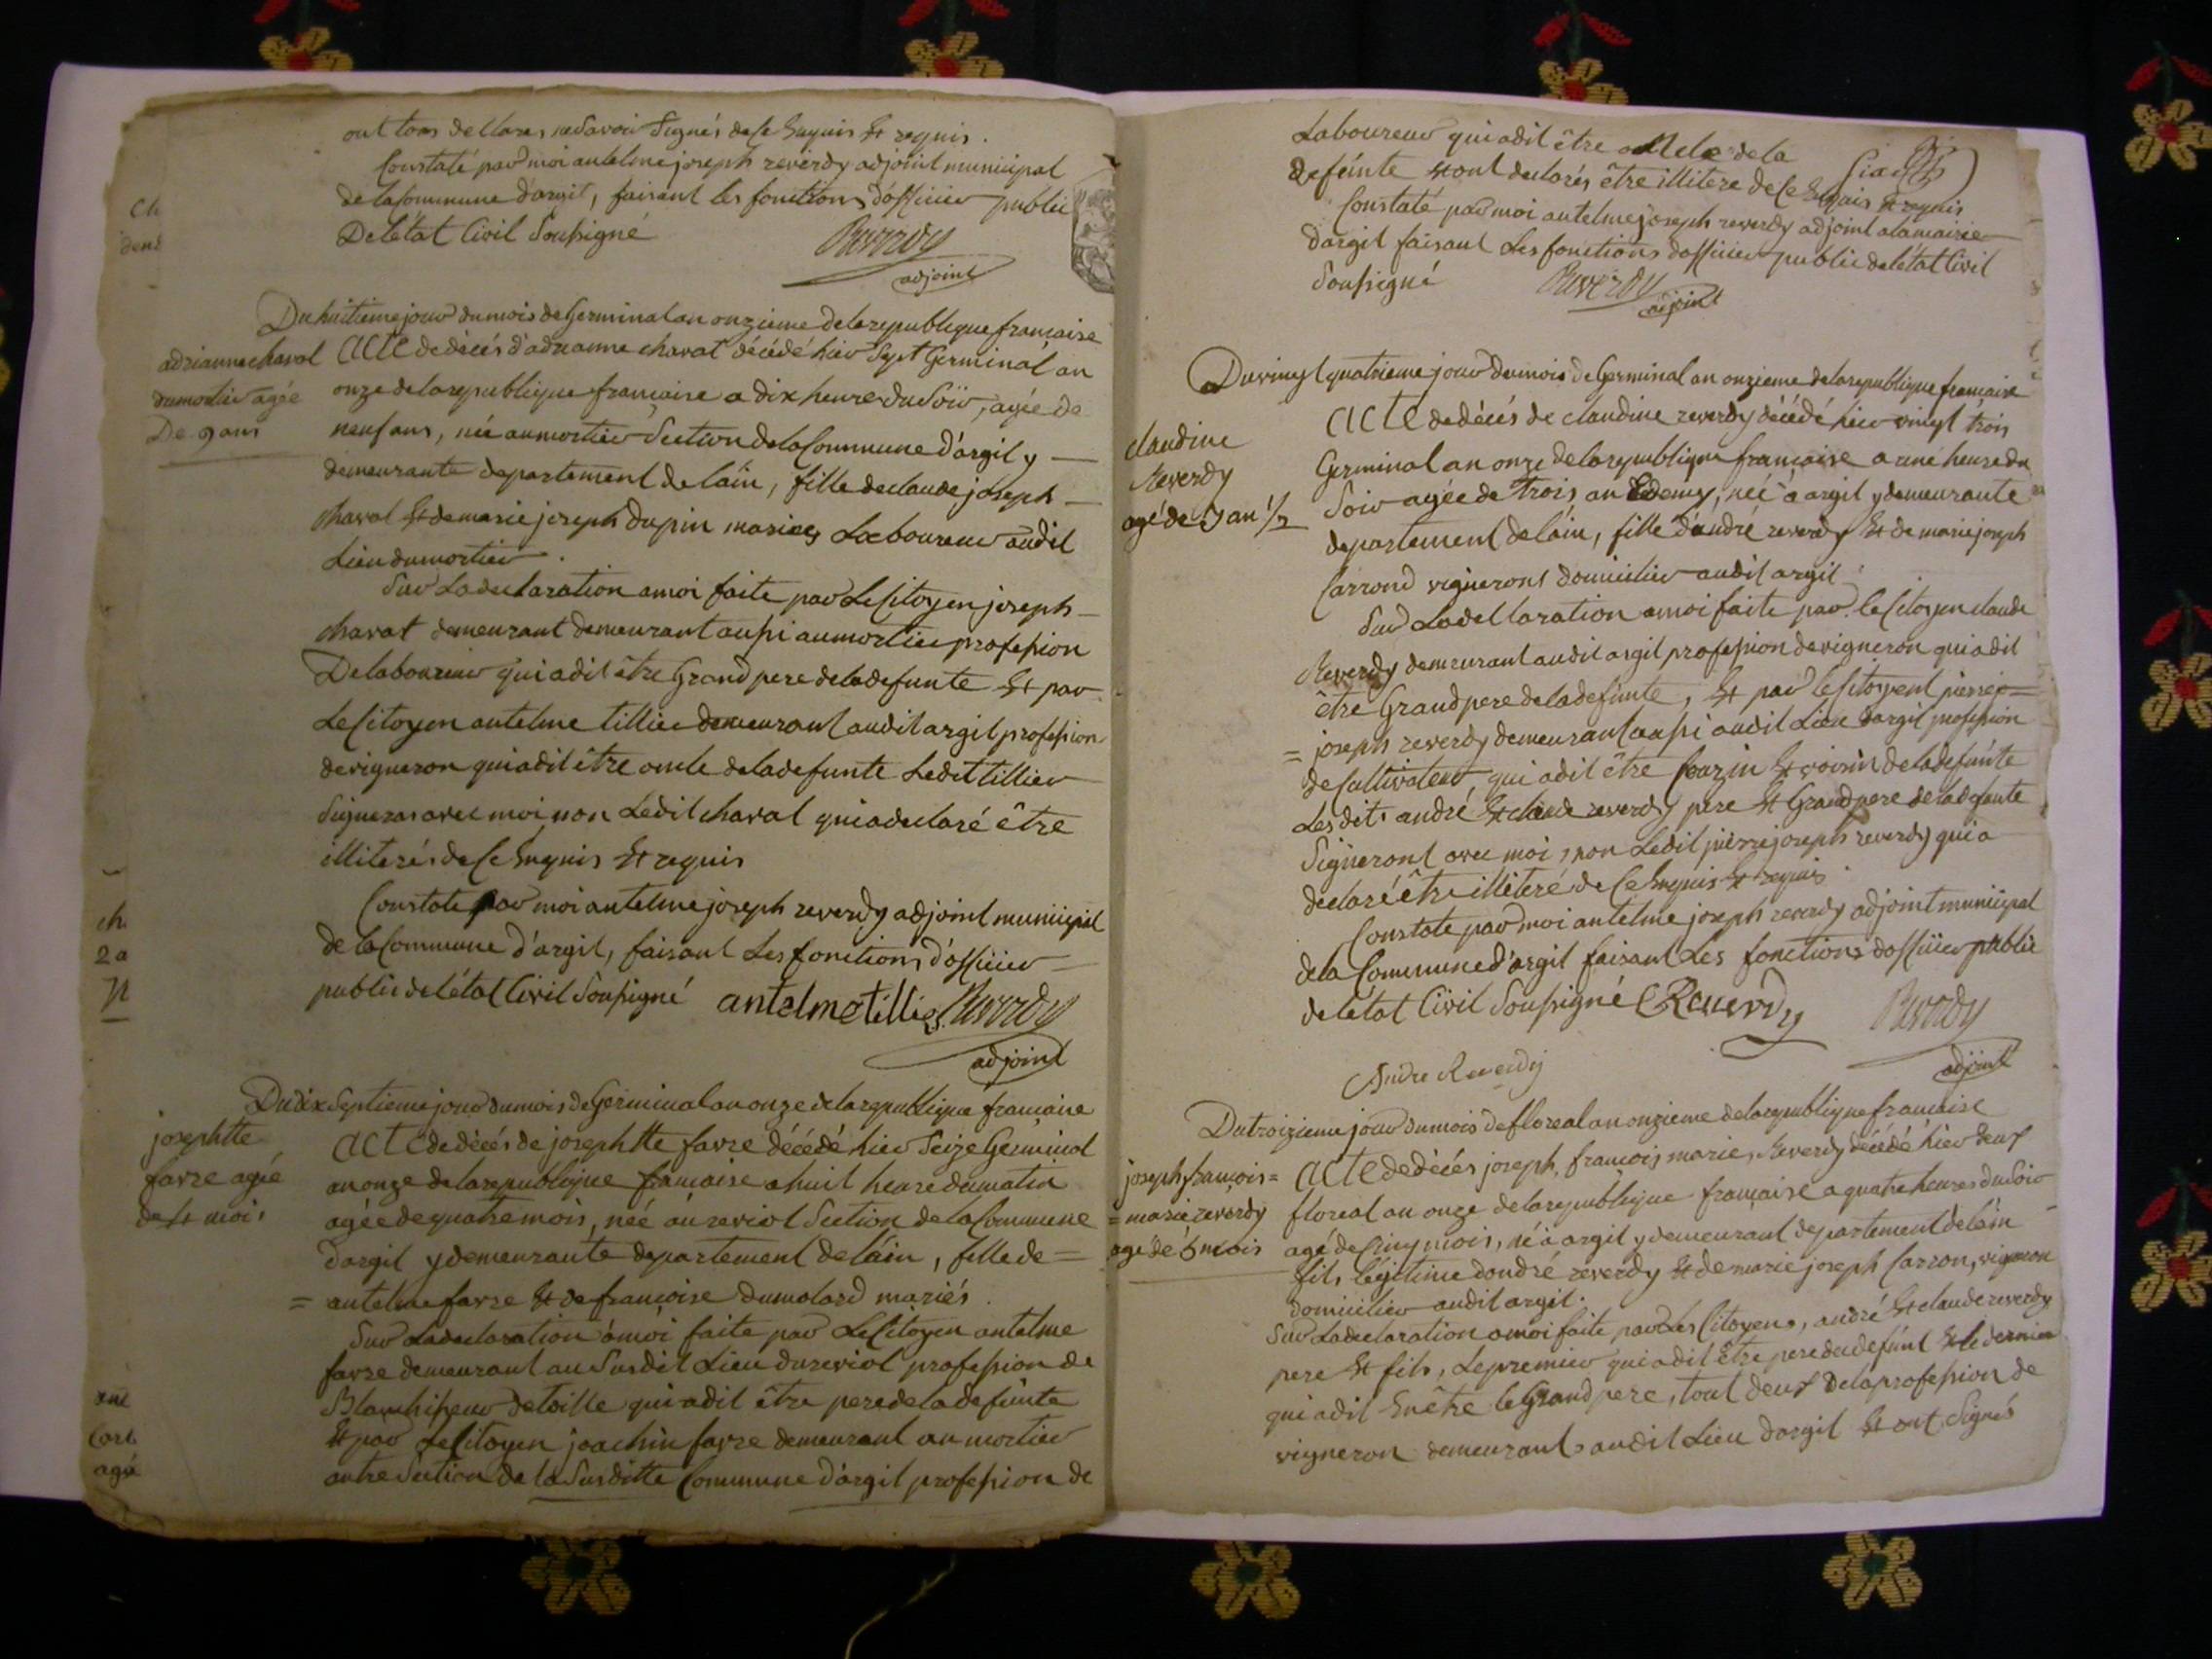 ont tous declarés ne Savoir Signés de ce Enquis Et requis.
Constaté par moi antelme joseph reverdy adjoint municipal
de la Commune d'argit, faisant les fonctions d'officier public
De l'état Civil Soussigné
Reverdy
adjoint
Du huitieme jour du mois de Germinal an onzieme de la republique francaise
adrianne charat
du mortier agée
De 9 ans
acte de décés d'adrianne charat décédé hier Sept Germinal an
onze de la republique francaise a dix heure du Soir, agée de
neuf ans, née au mortier Section de la Commune d'argil y
demeurante departement de l'ain, fille de claude joseph
charat Et de marie joseph dupin mariés Laboureur audit
Lieu du mortier.
Sur La declaration a moi faite par Le Citoyen joseph
charat demeurant demeurant aussi au mortier profession
De laboureur qui a dit être Grand pere de la defunte Et par
Le Citoyen antelme tillier demeurant audit argil profession
de vigneron qui a dit être oncle de la defunte Ledit tillier
Signera avec moi non Ledit charat qui a declaré être
illiterés de Ce Enquis Et requis
Constaté par moi antelme joseph reverdy adjoint municipal
de la Commune d'argil, faisant Les fonctions d'officier
public de l'état Civil Soussigné antelme tillier Reverdy
adjoint
Du dix Septieme jour du mois de Germinal an onze de la republique francaise
josephtte
favre agée
de 4 mois
acte de décés de josephtte favre décédé hier Seize Germinal
an onze de la republique francaise a huit heure du matin
agée de quatre mois, née au reviol Section de la Commune
d'argil y demeurante departement de l'ain, fille de =
= antelme favre Et de francoise dumolard mariés.
Sur La declaration a moi faite par Le Citoyen antelme
favre demeurant au Susdit Lieu du reviol profession de
Blanchisseur de toille qui a dit être pere de la defunte
Et par Le Citoyen joachin favre demeurant au mortier
autre Section de la Susditte Commune d'argil profession de
Laboureur qui a dit être de la
defunte Et ont declarés être illitere de Ce Enquis Et requis
Constaté par moi antelme joseph reverdy adjoint a la mairie
d'argil faisant Les fonctions d'officier public de l'état Civil
Soussigné
Reverdy
adjoint
Du vingt quatrieme jour du mois de Germinal an onzieme de la republique francaise
claudine
Reverdy
agé de 3 an 1/2
acte de décés de claudine reverdy décédé hier vingt trois
Germinal an onze de la republique francaise a une heure du
Soir agée de trois an Et demy, née a argil y demeurante
departement de l'ain, fille d'andré reverdy Et de marie joseph
Carrond vignerons domicilier audit argil.
Sur La declaration a moi faite par le Citoyen claude
Reverdy demeurant audit argil profession de vigneron qui a dit
être Grand pere de la defunte, Et par le Citoyent pierre jo=
= joseph reverdy demeurant aussi audit Lieu d'argil profession
de Cultivateur qui a dit être Couzin Et voisin de la defunte
Les dits andré Et claude reverdy pere Et Grand pere de la defunte
Signeront avec moi, non Ledit pierre joseph reverdy qui a
declaré être illiteré de Ce Enquis Et requis.
Constaté par moi antelme joseph reverdy adjoint municipal
de la Commune d'argil faisant Les fonctions d'officier public
de l'état Civil Soussigné C Reverdy Reverdy
adjoint
Andre Reverdy
Du troizieme jour du mois de floreal an onzieme de la republique francaise
joseph francois =
= marie reverdy
agé de 5 mois
acte de décés joseph, francois marie, Reverdy décédé hier deux
floreal an onze de la republique francaise a quatre heures du Soir
agé de Cinq mois, né a argil y demeurant departement de l'ain
fils légitime d'andré reverdy Et de marie joseph Carron, vigneron
domicilier audit argil.
Sur La declaration a moi faite par Les Citoyens, andré Et claude reverdy
pere Et fils, Le premier qui a dit être pere du defunt Et le dernier
qui a dit En être le Grand pere, tout deux De la profession de
vigneron demeurants audit Lieu d'argil Et ont Signés